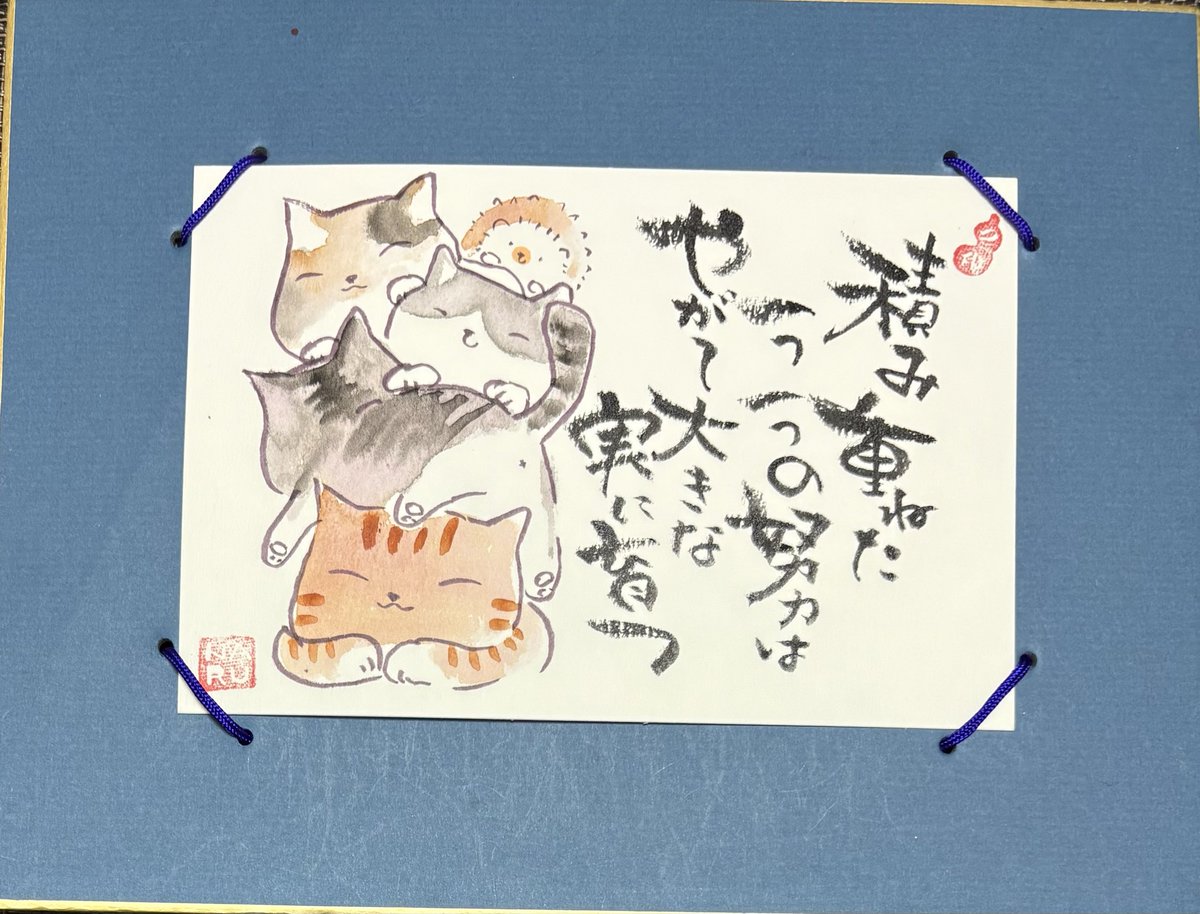 積み重ねた
一つ一つの努力は
やがて大きな
実に育つ
HARU